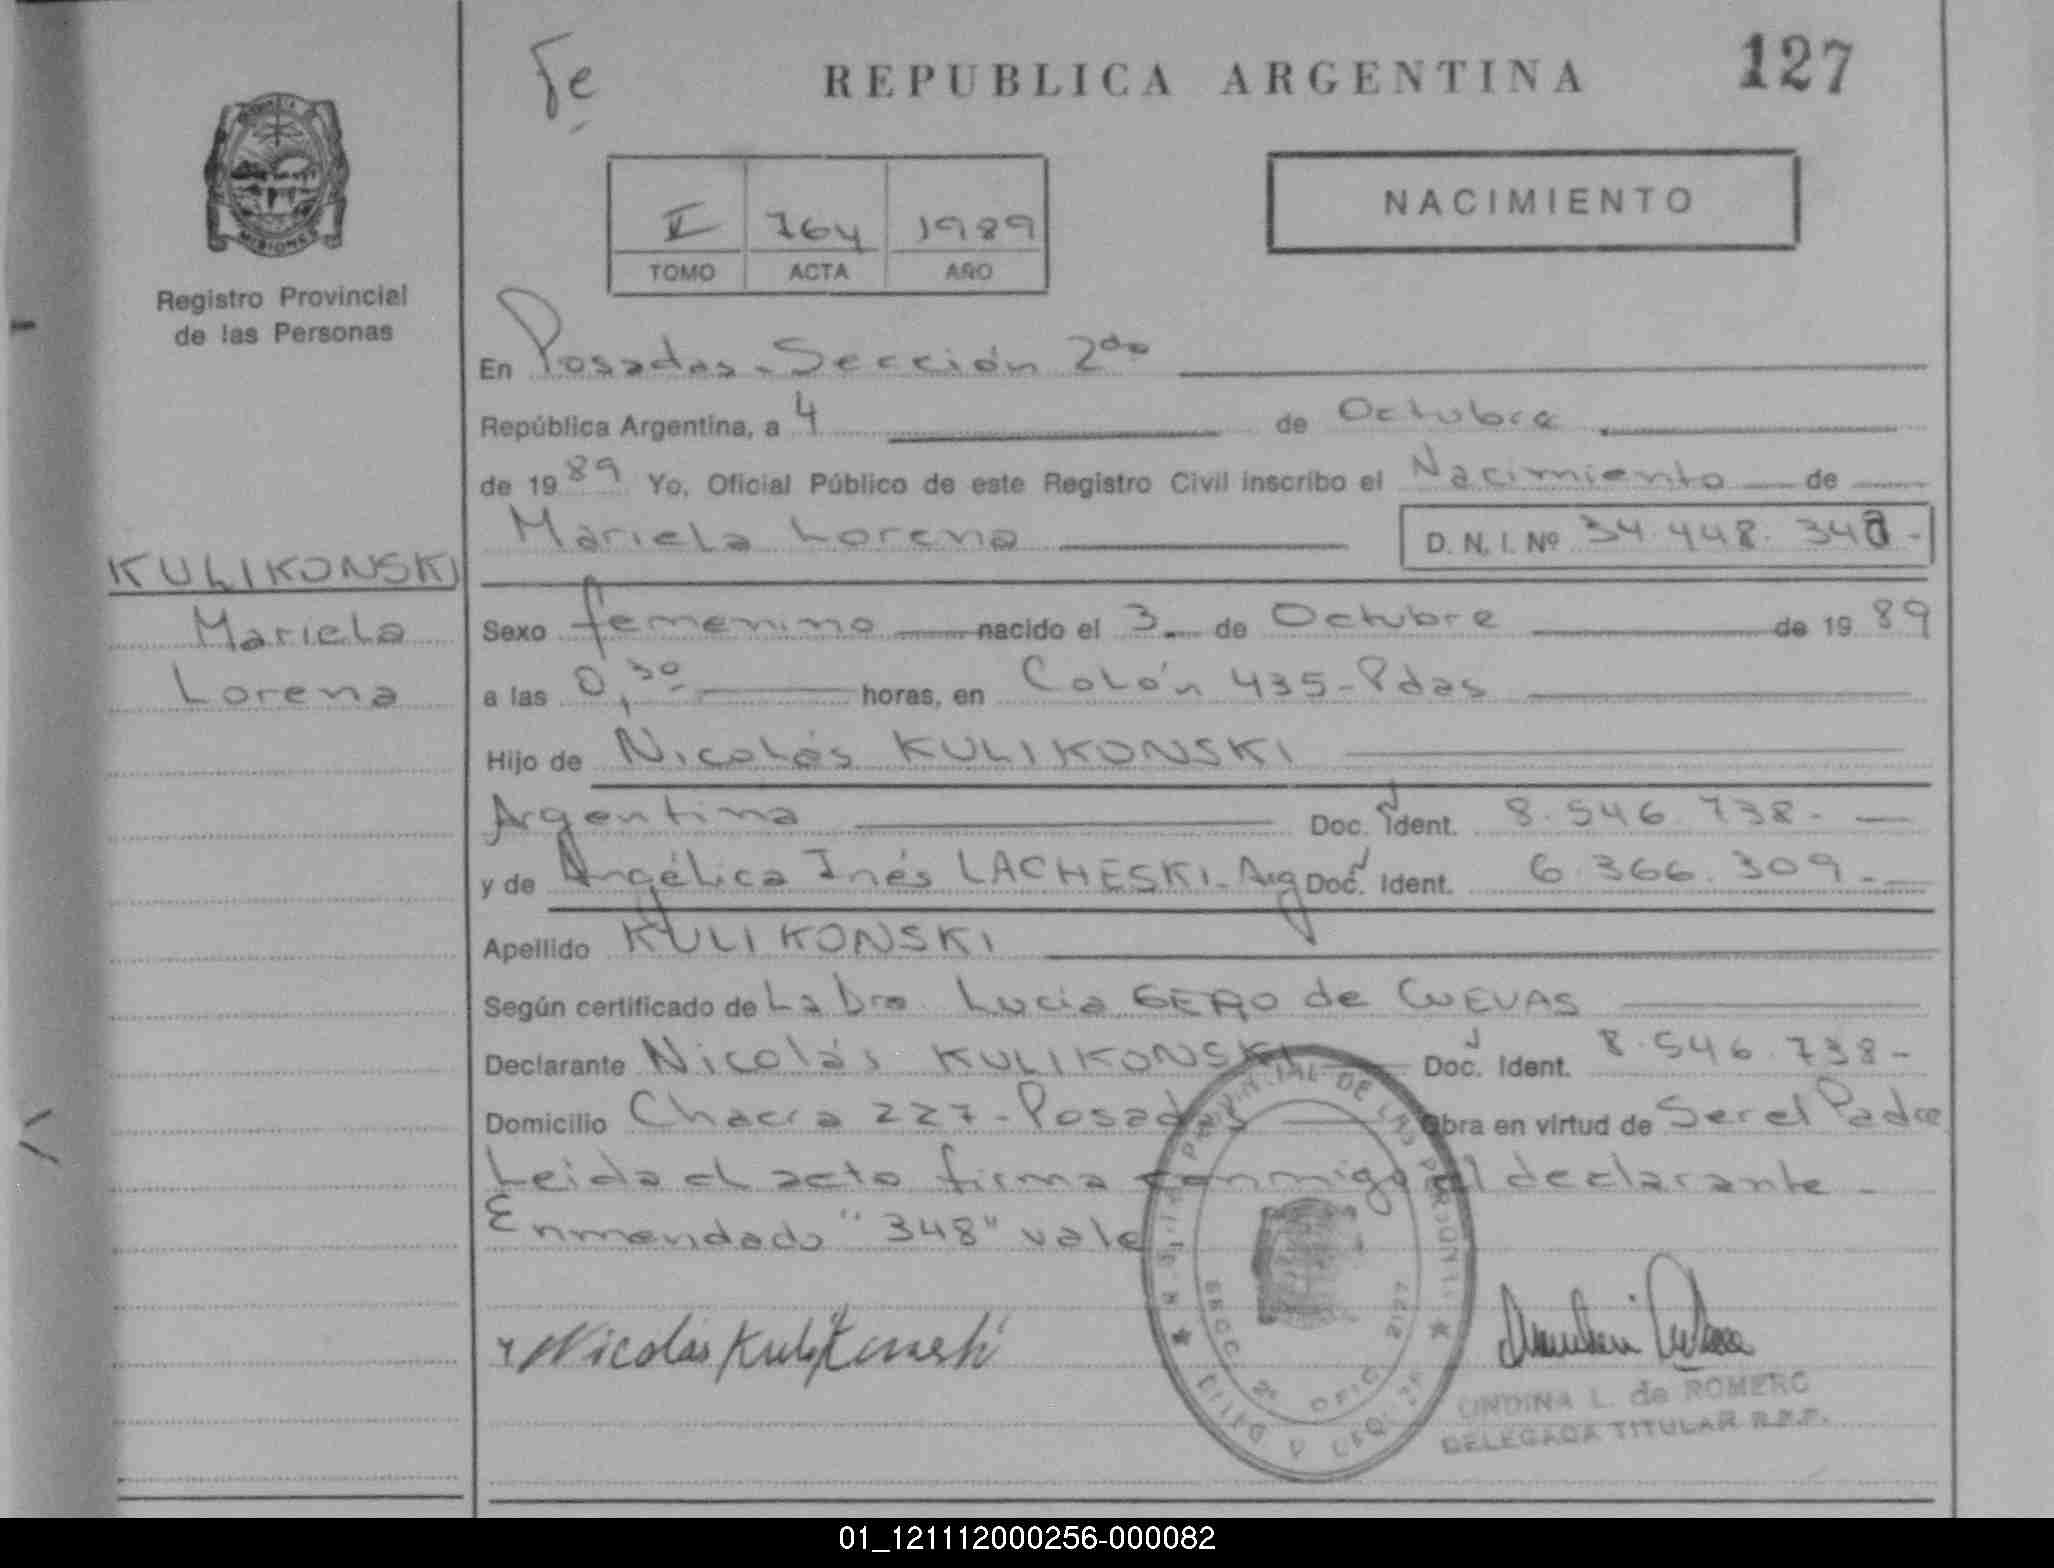 Fe
REPUBLICA ARGENTINA
127
MISIONES
Registro Provincial
de las Personas
II 764 1989
TOMO ACTA AÑO
NACIMIENTO
En Posadas - Sección 2da
República Argentina, a 4 de Octubre
de 1989 Yo, Oficial Público de este Registro Civil inscribo el Nacimiento de
Mariela Lorena D. N. I. Nº 34.448.348-
KULIKONSKI
Mariela
Lorena
Sexo femenino nacido el 3 de Octubre de 1989
a las 0,30 horas, en Colón 435 - Pdas
Hijo de Nicolás KULIKONSKI
Argentina Doc. Ident. 8.546.738-
y de Angélica Inés LACHESKI - Arg Doc. Ident. 6.366.309-
Apellido KULIKONSKI
Según certificado de La Dra. Lucia GERO de CUEVAS
Declarante Nicolás KULIKONSKI Doc. Ident. 8.546.738-
Domicilio Chacra 227 - Posadas Obra en virtud de Ser el Padre
Leida el acto firma conmigo el declarante -
Enmendado "348" vale
Nicolás Kulikonski
SECC 2ª OFIC 2127
UNDINA L. de ROMERO
DELEGADA TITULAR R.P.P.
01_121112000256-000082